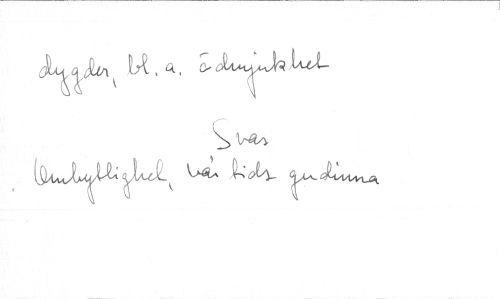 dygder, bl. a. ödmjukhet
Svar
Ombytlighet, vår tids gudinna